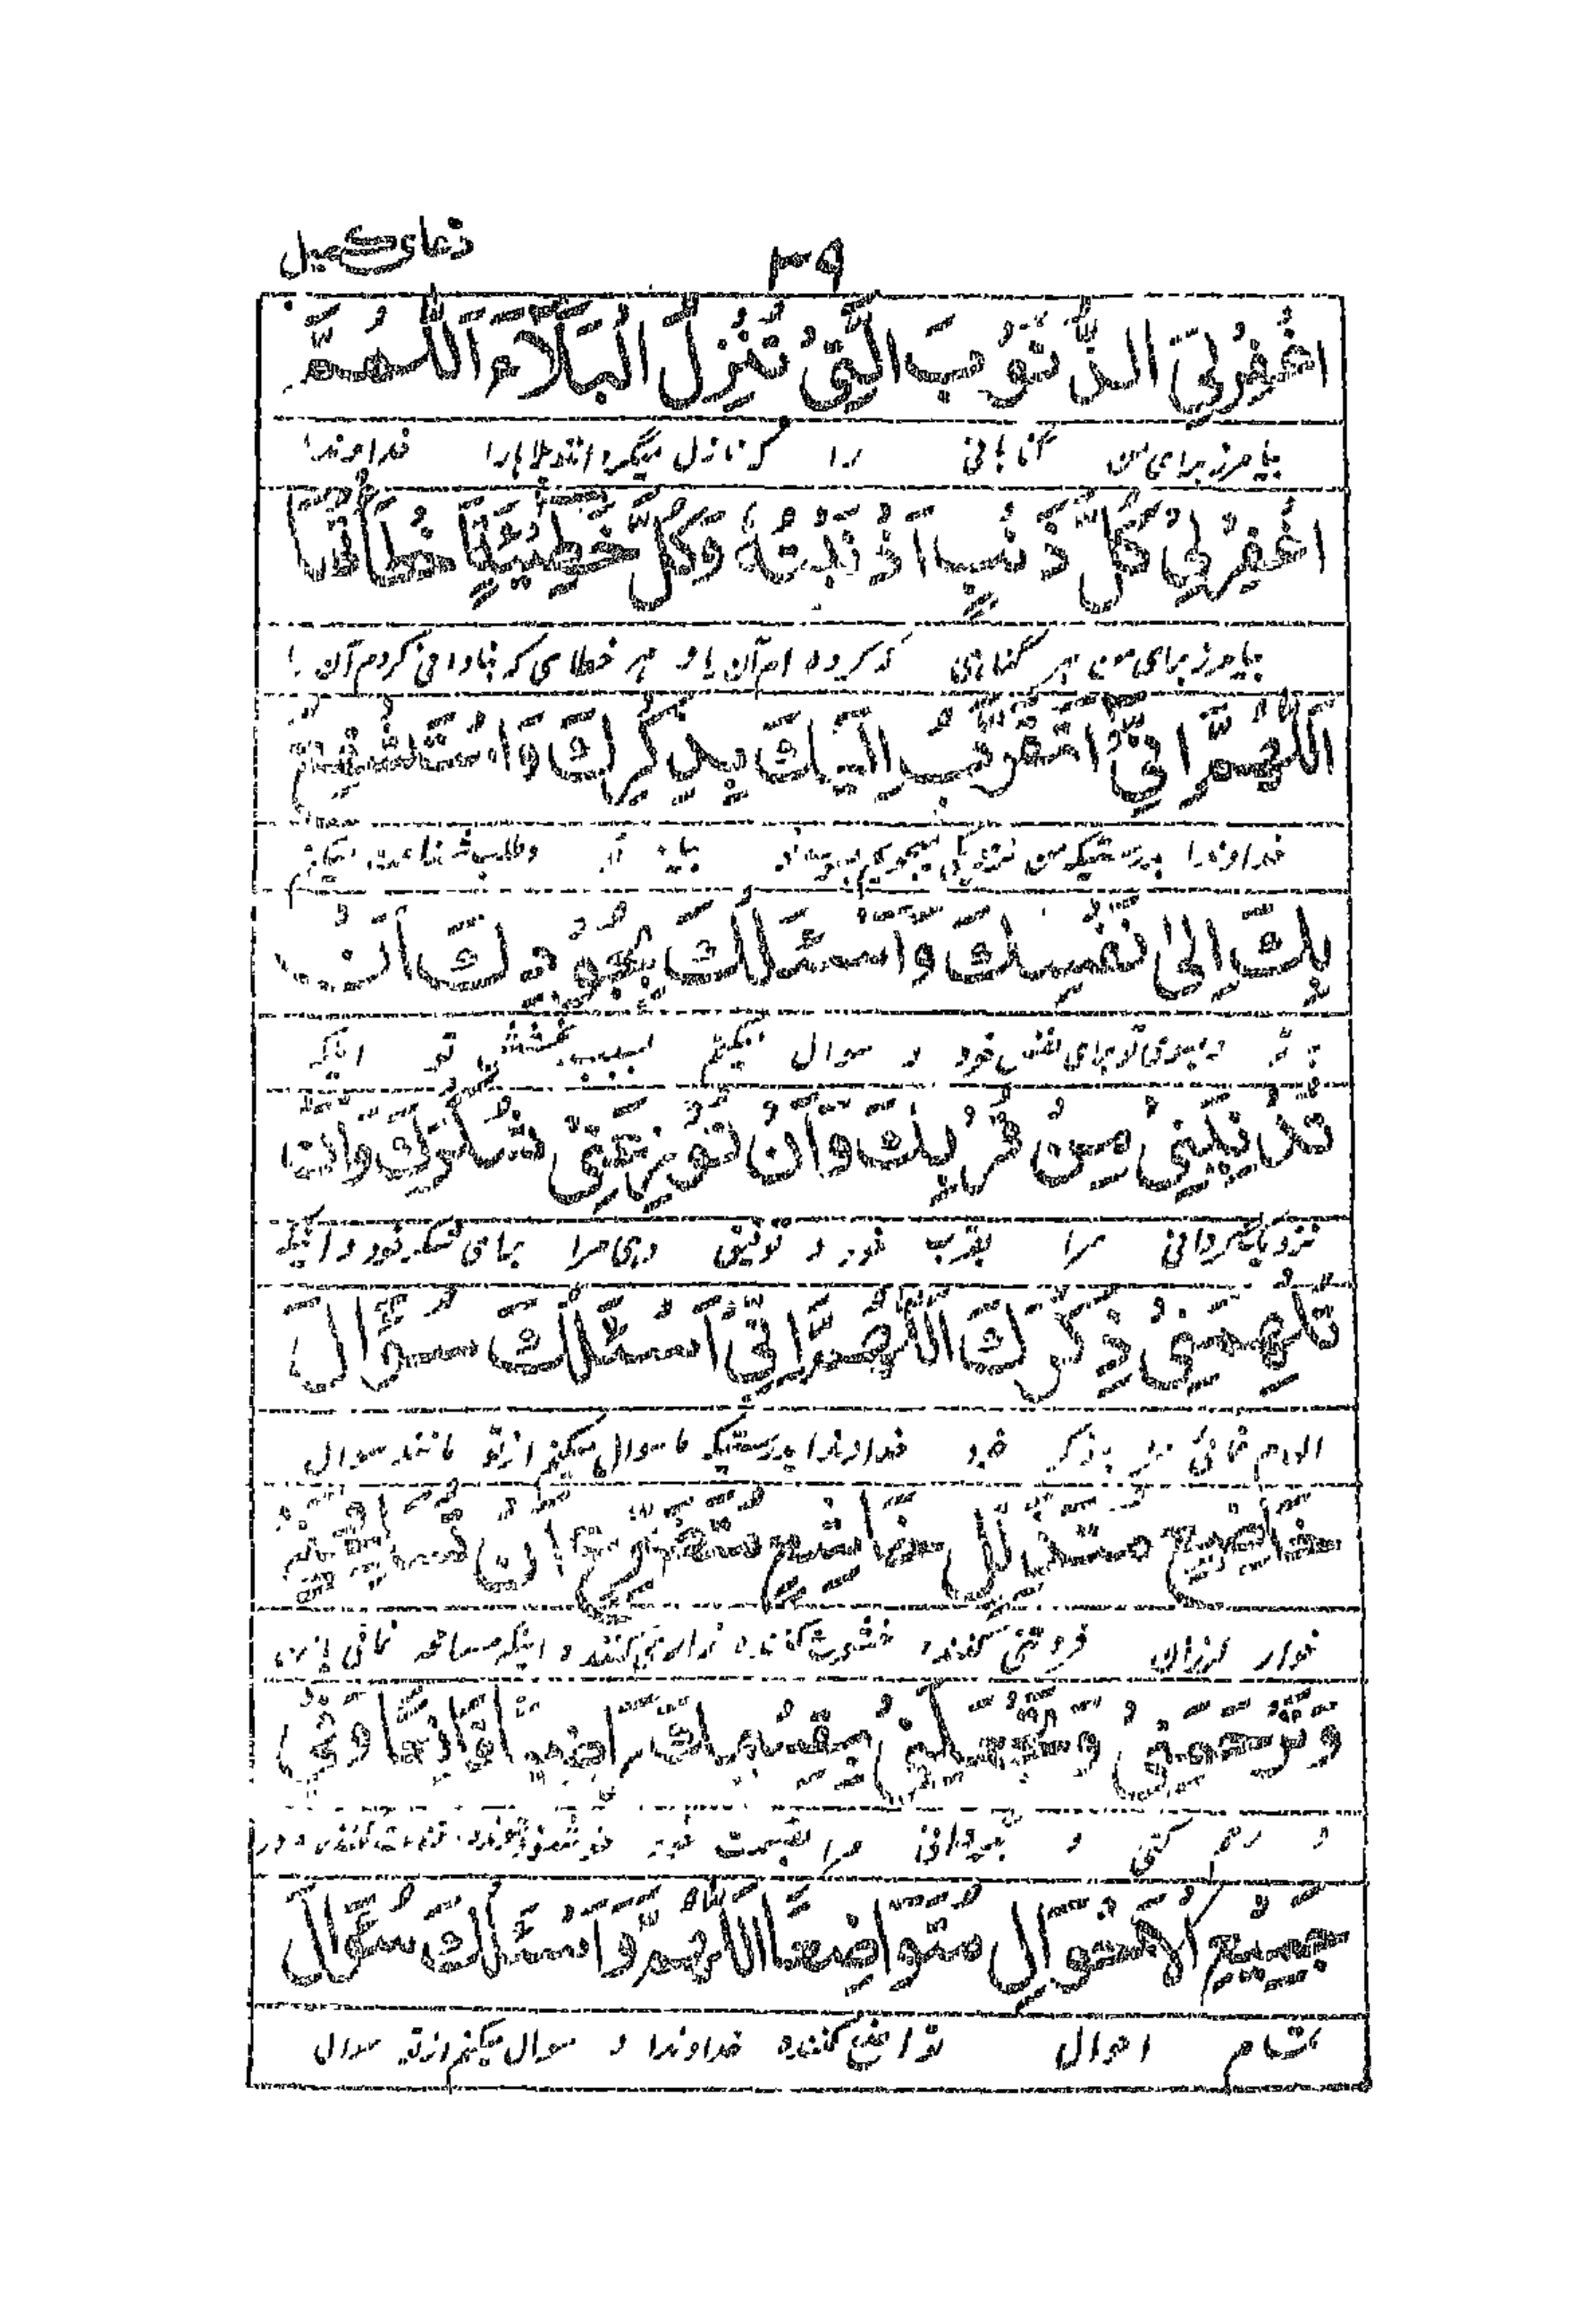 ۳۹ دعای کمیل
اغْفِرْ لِیَ الذُّنُوبَ الَّتِی تُنْزِلُ الْبَلَآءَ اَللّٰهُمَّ
بیامرز برای من گناهانی را که نازل میگرداند بلاها را خداوندا
اغْفِرْ لِی كُلَّ ذَنْبٍ اَذْنَبْتُهُ وَكُلَّ خَطِیئَةٍ اَخْطَأْتُهَا
بیامرز برای من هر گناهی که کرده ام آن را و هر خطای که بنادانی کردم آن را
اَللّٰهُمَّ اِنِّی اَتَقَرَّبُ اِلَیْكَ بِذِكْرِكَ وَاَسْتَشْفِعُ
خداوندا بدرستیکه من نزدیکی میجویم بسوی تو وطلب شفاعت میکنم
بِكَ اِلٰی نَفْسِكَ وَاَسْئَلُكَ بِجُودِكَ اَنْ
برای نفس خود و سوال میکنم بسبب بخشش تو اینکه
تُدْنِیَنِی مِنْ قُرْبِكَ وَاَنْ تُوزِعَنِی شُكْرَكَ وَاَنْ
نزدیک گردانی مرا بقرب خود و توفیق دهی مرا برای شکر خود و اینکه
تُلْهِمَنِی ذِكْرَكَ اَللّٰهُمَّ اِنِّی اَسْئَلُكَ سُؤَالَ
الهام نمائی مرا بذکر خود خداوندا بدرستیکه ما سوال میکنم از تو مانند سوال
خَاضِعٍ مُتَذَلِّلٍ خَاشِعٍ مُتَضَرِّعٍ اَنْ تُسَامِحَنِی
خوار لرزان فروتنی کننده خشوع کننده زاری کننده اینکه مسامحه نمائی از من
وَتَرْحَمَنِی وَتَجْعَلَنِی بِقِسْمِكَ رَاضِیًا قَانِعًا وَفِی
و رحم کنی و بگردانی مرا بقسمت خود قناعت کننده و در
جَمِیعِ الْاَحْوَالِ مُتَوَاضِعًا اَللّٰهُمَّ وَاَسْئَلُكَ سُؤَالَ
تمام احوال تواضع کننده خداوندا و سوال میکنم از تو سوال